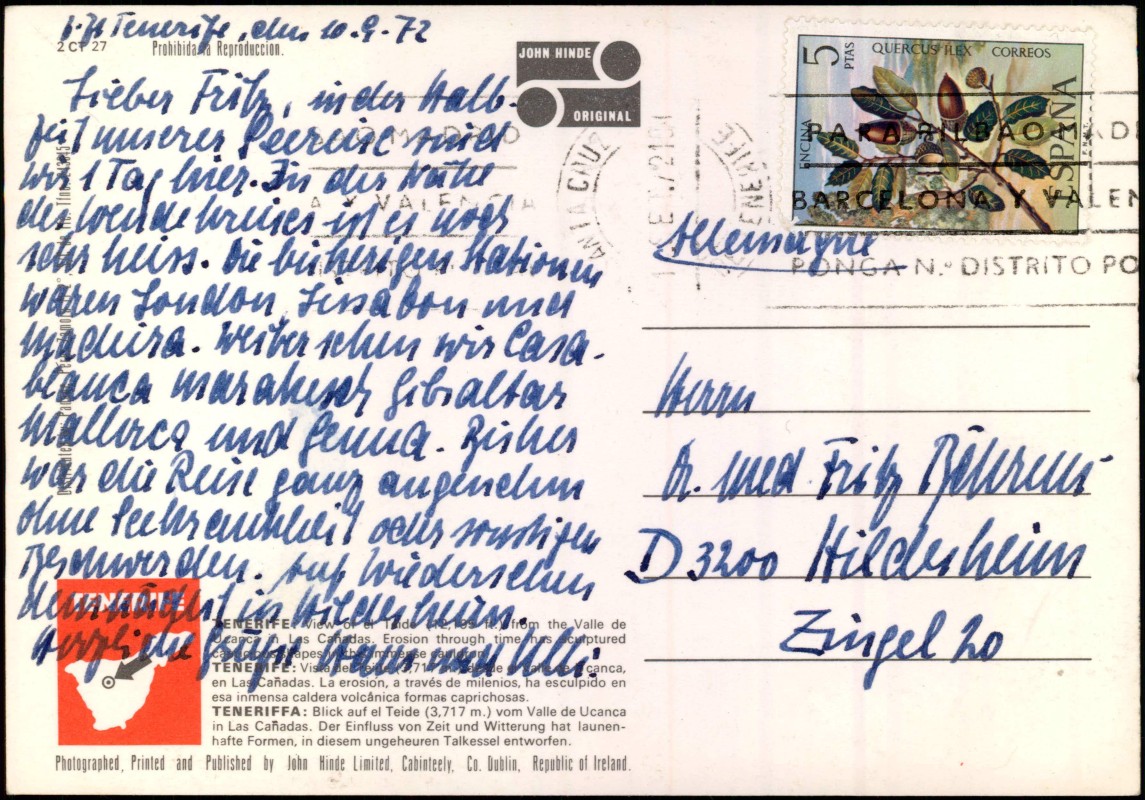 Tenerife, den 10.9.72
2 CT 27
Prohibida la Reproducción.
Lieber Fritz, in der Halb-
zeit unserer Seereise sind
wir 1 Tag hier. In der Nähe
des Wendekreises ist es noch
sehr heiss. Die bisherigen Stationen
waren London, Lissabon und
Madeira. Weiter sehen wir Casa-
blanca Marakesch Gibraltar
Mallorca und Genua. Bisher
war die Reise ganz angenehm
ohne Seekrankheit oder sonstigen
Beschwerden. Auf Wiedersehen
demnächst in Hildesheim.
Herzliche Grüße
JOHN HINDE
ORIGINAL
5 PTAS
QUERCUS ILEX CORREOS
ENCINA
ESPAÑA
PARA BILBAO MAD
BARCELONA Y VALEN
PONGA N.º DISTRITO PO
Allemagne
Herrn
Dr. med Fritz Behrens
D 3200 Hildesheim
Zingel 20
TENERIFE
TENERIFE: View of el Teide (12,195 ft.) from the Valle de
Ucanca in Las Cañadas. Erosion through time has sculptured
capricious shapes in this immense cauldron.
TENERIFE: Vista del Teide (3,717 m.) desde el Valle de Ucanca,
en Las Cañadas. La erosión, a través de milenios, ha esculpido en
esa inmensa caldera volcánica formas caprichosas.
TENERIFFA: Blick auf el Teide (3,717 m.) vom Valle de Ucanca
in Las Cañadas. Der Einfluss von Zeit und Witterung hat launen-
hafte Formen, in diesem ungeheuren Talkessel entworfen.
Photographed, Printed and Published by John Hinde Limited, Cabinteely, Co. Dublin, Republic of Ireland.